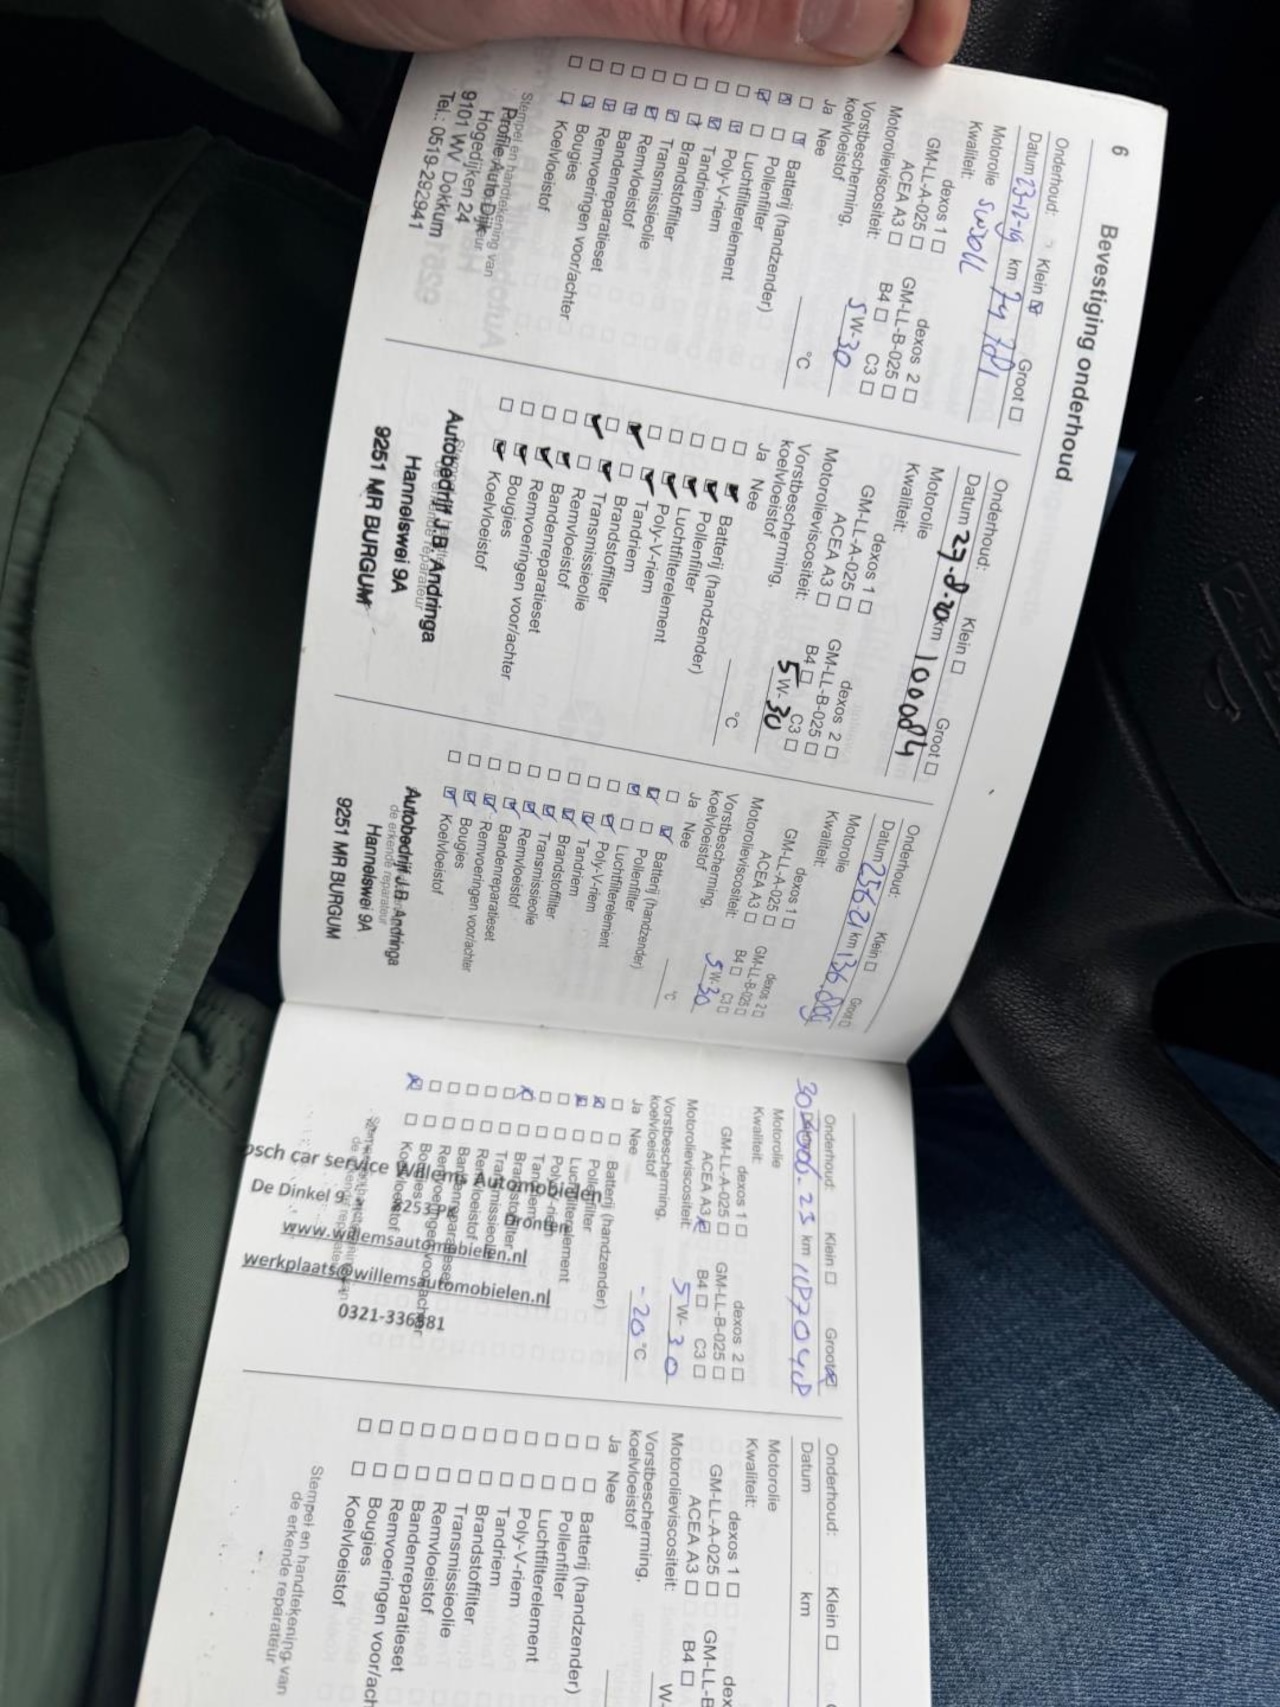 6
Bevestiging onderhoud
Onderhoud: Klein ☑ Groot ☐
Datum 23-12-19 km 74781
Motorolie
Kwaliteit:
dexos 1 ☐ dexos 2 ☐
GM-LL-A-025 ☐ GM-LL-B-025 ☐
ACEA A3 ☐ B4 ☐ C3 ☐
Motorolieviscositeit: 5 W-30
Vorstbescherming,
koelvloeistof °C
Ja Nee
☐ ☑ Batterij (handzender)
☑ ☐ Pollenfilter
☑ ☐ Luchtfilterelement
☐ ☑ Poly-V-riem
☐ ☑ Tandriem
☐ ☑ Brandstoffilter
☐ ☑ Transmissieolie
☐ ☑ Remvloeistof
☐ ☑ Bandenreparatieset
☐ ☑ Remvoeringen voor/achter
☐ ☑ Bougies
☐ ☑ Koelvloeistof
Stempel en handtekening van
Profile Auto Dijk
Hogedijken 24
9101 WV Dokkum
Tel.: 0519-292941
Onderhoud: Klein ☐ Groot ☐
Datum 27-8-20 km 100084
Motorolie
Kwaliteit:
dexos 1 ☐ dexos 2 ☐
GM-LL-A-025 ☐ GM-LL-B-025 ☐
ACEA A3 ☐ B4 ☐ C3 ☐
Motorolieviscositeit: 5 W-30
Vorstbescherming,
koelvloeistof °C
Ja Nee
Batterij (handzender)
Pollenfilter
Luchtfilterelement
Poly-V-riem
Tandriem
Brandstoffilter
Transmissieolie
Remvloeistof
Bandenreparatieset
Remvoeringen voor/achter
Bougies
Koelvloeistof
de erkende reparateur
Autobedrijf J.B. Andringa
Hannelswei 9A
9251 MR BURGUM
Onderhoud: Klein ☐ Groot ☐
Datum km
Motorolie
Kwaliteit:
dexos 1 ☐ dexos 2 ☐
GM-LL-A-025 ☐ GM-LL-B-025 ☐
ACEA A3 ☐ B4 ☐ C3 ☐
Motorolieviscositeit: 5 W-30
Vorstbescherming,
koelvloeistof °C
Ja Nee
Batterij (handzender)
Pollenfilter
Luchtfilterelement
Poly-V-riem
Tandriem
Brandstoffilter
Transmissieolie
Remvloeistof
Bandenreparatieset
Remvoeringen voor/achter
Bougies
Koelvloeistof
de erkende reparateur
Autobedrijf J.B. Andringa
Hannelswei 9A
9251 MR BURGUM
Onderhoud: Klein ☐ Groot ☒
km
Motorolie
Kwaliteit:
dexos 1 ☐ dexos 2 ☐
GM-LL-A-025 ☐ GM-LL-B-025 ☐
ACEA A3 ☒ B4 ☐ C3 ☐
Motorolieviscositeit: 5 W-30
Vorstbescherming,
koelvloeistof -20 °C
Ja Nee
Batterij (handzender)
Pollenfilter
Luchtfilterelement
Poly-V-riem
Tandriem
Brandstoffilter
Transmissieolie
Remvloeistof
Bandenreparatieset
Remvoeringen voor/achter
Bougies
Koelvloeistof
osch car service Willems Automobielen
De Dinkel 9 Dronten
www.willemsautomobielen.nl
werkplaats@willemsautomobielen.nl
0321-336881
Onderhoud: Klein ☐
Datum km
Motorolie
Kwaliteit:
dexos 1 ☐ dex
GM-LL-A-025 ☐ GM-LL-B
ACEA A3 ☐ B4 ☐
Motorolieviscositeit: W-
Vorstbescherming,
koelvloeistof
Ja Nee
☐ ☐ Batterij (handzender)
☐ ☐ Pollenfilter
☐ ☐ Luchtfilterelement
☐ ☐ Poly-V-riem
☐ ☐ Tandriem
☐ ☐ Brandstoffilter
☐ ☐ Transmissieolie
☐ ☐ Remvloeistof
☐ ☐ Bandenreparatieset
☐ ☐ Remvoeringen voor/ach
☐ ☐ Bougies
☐ ☐ Koelvloeistof
Stempel en handtekening van
de erkende reparateur